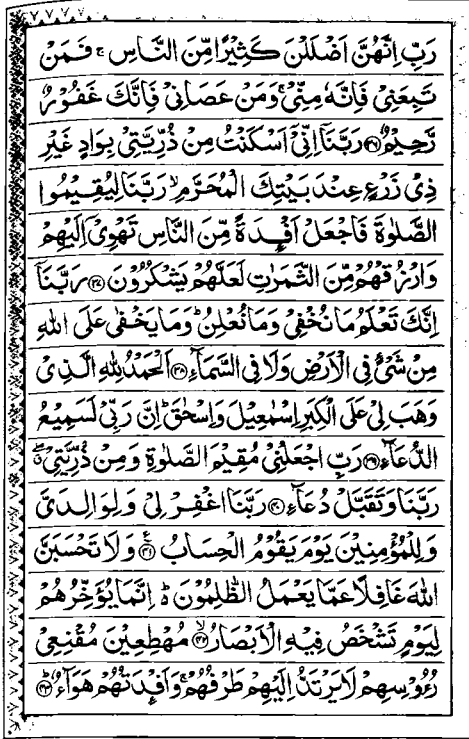 رَبِّ اِنَّهُنَّ اَضْلَلْنَ كَثِيْرًا مِّنَ النَّاسِ ۚ فَمَنْ
تَبِعَنِيْ فَاِنَّهٗ مِنِّيْ ۚ وَمَنْ عَصَانِيْ فَاِنَّكَ غَفُوْرٌ
رَّحِيْمٌ ۝۳۶ رَبَّنَاۤ اِنِّيْۤ اَسْكَنْتُ مِنْ ذُرِّيَّتِيْ بِوَادٍ غَيْرِ
ذِيْ زَرْعٍ عِنْدَ بَيْتِكَ الْمُحَرَّمِ ۙ رَبَّنَا لِيُقِيْمُوا
الصَّلٰوةَ فَاجْعَلْ اَفْـِٕدَةً مِّنَ النَّاسِ تَهْوِيْۤ اِلَيْهِمْ
وَارْزُقْهُمْ مِّنَ الثَّمَرٰتِ لَعَلَّهُمْ يَشْكُرُوْنَ ۝۳۷ رَبَّنَاۤ
اِنَّكَ تَعْلَمُ مَا نُخْفِيْ وَمَا نُعْلِنُ ؕ وَمَا يَخْفٰى عَلَى اللّٰهِ
مِنْ شَيْءٍ فِي الْاَرْضِ وَلَا فِي السَّمَآءِ ۝۳۸ اَلْحَمْدُ لِلّٰهِ الَّذِيْ
وَهَبَ لِيْ عَلَى الْكِبَرِ اِسْمٰعِيْلَ وَاِسْحٰقَ ؕ اِنَّ رَبِّيْ لَسَمِيْعُ
الدُّعَآءِ ۝۳۹ رَبِّ اجْعَلْنِيْ مُقِيْمَ الصَّلٰوةِ وَمِنْ ذُرِّيَّتِيْ ۖ
رَبَّنَا وَتَقَبَّلْ دُعَآءِ ۝۴۰ رَبَّنَا اغْفِرْ لِيْ وَلِوَالِدَيَّ
وَلِلْمُؤْمِنِيْنَ يَوْمَ يَقُوْمُ الْحِسَابُ ۝۴۱ وَلَا تَحْسَبَنَّ
اللّٰهَ غَافِلًا عَمَّا يَعْمَلُ الظّٰلِمُوْنَ ؕ اِنَّمَا يُؤَخِّرُهُمْ
لِيَوْمٍ تَشْخَصُ فِيْهِ الْاَبْصَارُ ۝۴۲ مُهْطِعِيْنَ مُقْنِعِيْ
رُءُوْسِهِمْ لَا يَرْتَدُّ اِلَيْهِمْ طَرْفُهُمْ ۚ وَاَفْـِٕدَتُهُمْ هَوَآءٌ ۝۴۳